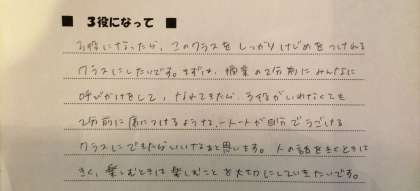 ■ 3役になって ■
3役になったら、このクラスをしっかりけじめをつけれる
クラスにしたいです。まずは、授業の2分前にみんなに
呼びかけをして、なれてきたら、3役がいわなくても
2分前に席につけるような、一人一人が自分でうごける
クラスにできたらいいなぁと思います。人の話をきくときは
きく、楽しむときは楽しむことを大切にしていきたいです。